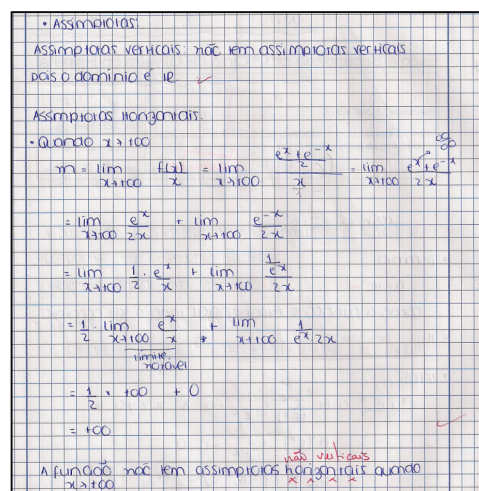 • Assimptotas:
Assimptotas verticais: não tem assimptotas verticais
pois o domínio é IR ✓
Assimptotas Horizontais.
• Quando x→+∞
m = lim x→+∞ f(x)/x = lim x→+∞ ((e^x + e^-x)/2)/(x/1) = lim x→+∞ (e^x + e^-x)/2x ∞/∞
= lim x→+∞ e^x/2x + lim x→+∞ e^-x/2x
= lim x→+∞ 1/2 · e^x/x + lim x→+∞ (1/e^x)/2x
= 1/2 · lim x→+∞ e^x/x + lim x→+∞ 1/(e^x · 2x)
limite
notável
= 1/2 × +∞ + 0
= +∞ ✓
não verticais
A função não tem assimptotas horizontais quando
x→+∞ x x x x